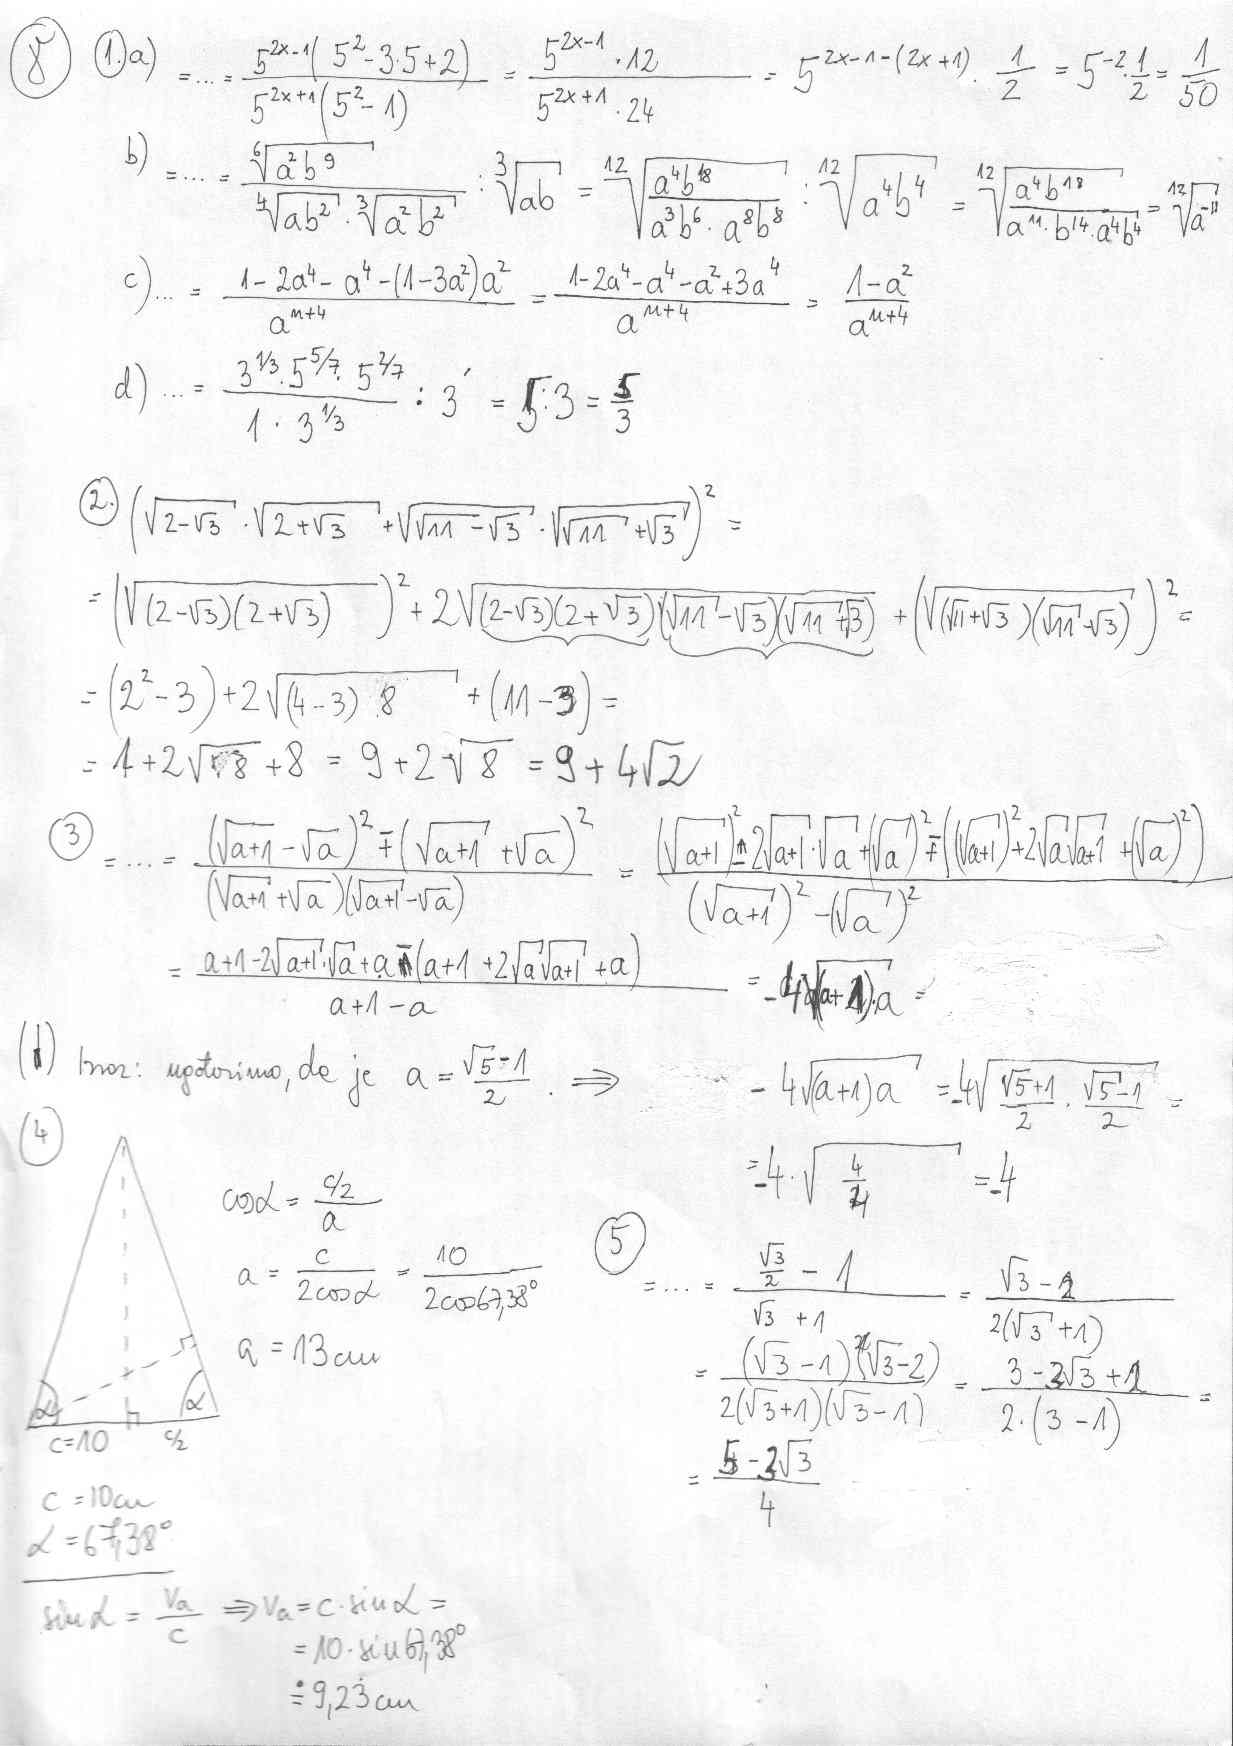 8 1. a) = ... = 5^{2x-1}(5^2 - 3·5 + 2) / 5^{2x+1}(5^2 - 1) = 5^{2x-1}·12 / 5^{2x+1}·24 = 5^{2x-1-(2x+1)} · 1/2 = 5^{-2}·1/2 = 1/50
b) = ... = ⁶√(a^2 b^9) / (⁴√(ab^2) · ³√(a^2 b^2)) : ³√(ab) = ¹²√(a^4 b^18 / (a^3 b^6 · a^8 b^8)) : ¹²√(a^4 b^4) = ¹²√(a^4 b^18 / (a^11 · b^14 · a^4 b^4)) = ¹²√(a^{-11})
c) ... = (1 - 2a^4 - a^4 - (1 - 3a^2)a^2) / a^{n+4} = (1 - 2a^4 - a^4 - a^2 + 3a^4) / a^{n+4} = (1 - a^2) / a^{n+4}
d) ... = (3^{1/3} · 5^{5/7} · 5^{2/7}) / (1 · 3^{1/3}) : 3 = 5 : 3 = 5/3
2. (√(2-√3) · √(2+√3) + √(√11 - √3) · √(√11 + √3))^2 =
= (√((2-√3)(2+√3)))^2 + 2√((2-√3)(2+√3)(√11 - √3)(√11 + √3)) + (√((√11+√3)(√11-√3)))^2 =
= (2^2 - 3) + 2√((4-3) 8) + (11 - 3) =
= 1 + 2√8 + 8 = 9 + 2√8 = 9 + 4√2
3 = ... = ((√(a+1) - √a)^2 - (√(a+1) + √a)^2) / ((√(a+1) + √a)(√(a+1) - √a)) = ((√(a+1))^2 - 2√(a+1)·√a + (√a)^2 - ((√(a+1))^2 + 2√a√(a+1) + (√a)^2)) / ((√(a+1))^2 - (√a)^2)
= (a+1 - 2√(a+1)·√a + a - (a+1 + 2√a√(a+1) + a)) / (a+1-a) = -4√((a+1)·a) =
Izraz: ugotovimo, da je a = (√5 - 1)/2 . ⇒ -4√((a+1)a) = -4√((√5+1)/2 · (√5-1)/2) =
= -4·√(4/4) = -4
4
cosα = (c/2)/a
a = c/(2cosα) = 10/(2cos67,38°)
a = 13cm
α α
c=10 c/2
c = 10cm
α = 67,38°
sinα = va/c ⇒ va = c·sinα =
= 10·sin67,38°
≐ 9,23cm
5 = ... = (√3/2 - 1)/(√3 + 1) = (√3 - 2)/(2(√3 + 1))
= (√3 - 1)(√3 - 2)/(2(√3+1)(√3-1)) = (3 - 3√3 + 2)/(2·(3 - 1)) =
= (5 - 3√3)/4